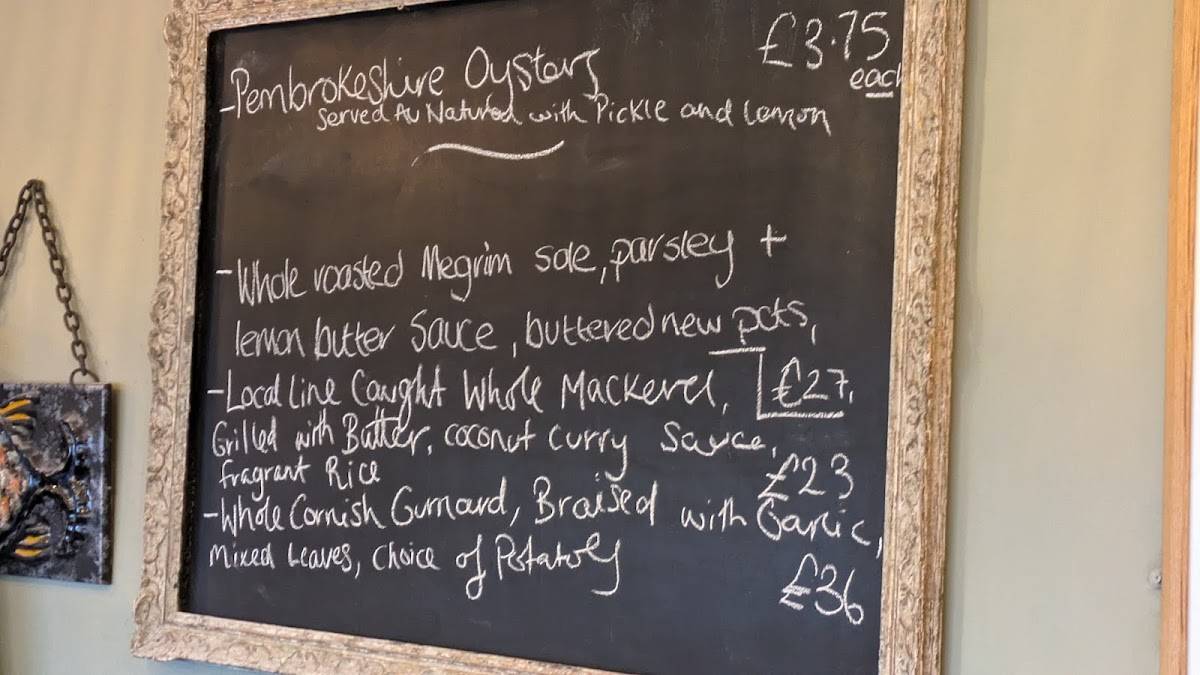 -Pembrokeshire Oysters £3.75
each
Served Au Natural with Pickle and Lemon
-Whole roasted Megrim sole, parsley +
lemon butter sauce, buttered new pots,
-Local Line Caught Whole Mackerel, £27,
Grilled with Butter, coconut curry sauce,
fragrant Rice £23
-Whole Cornish Gurnard, Braised with Garlic,
Mixed Leaves, Choice of Potatoes
£36